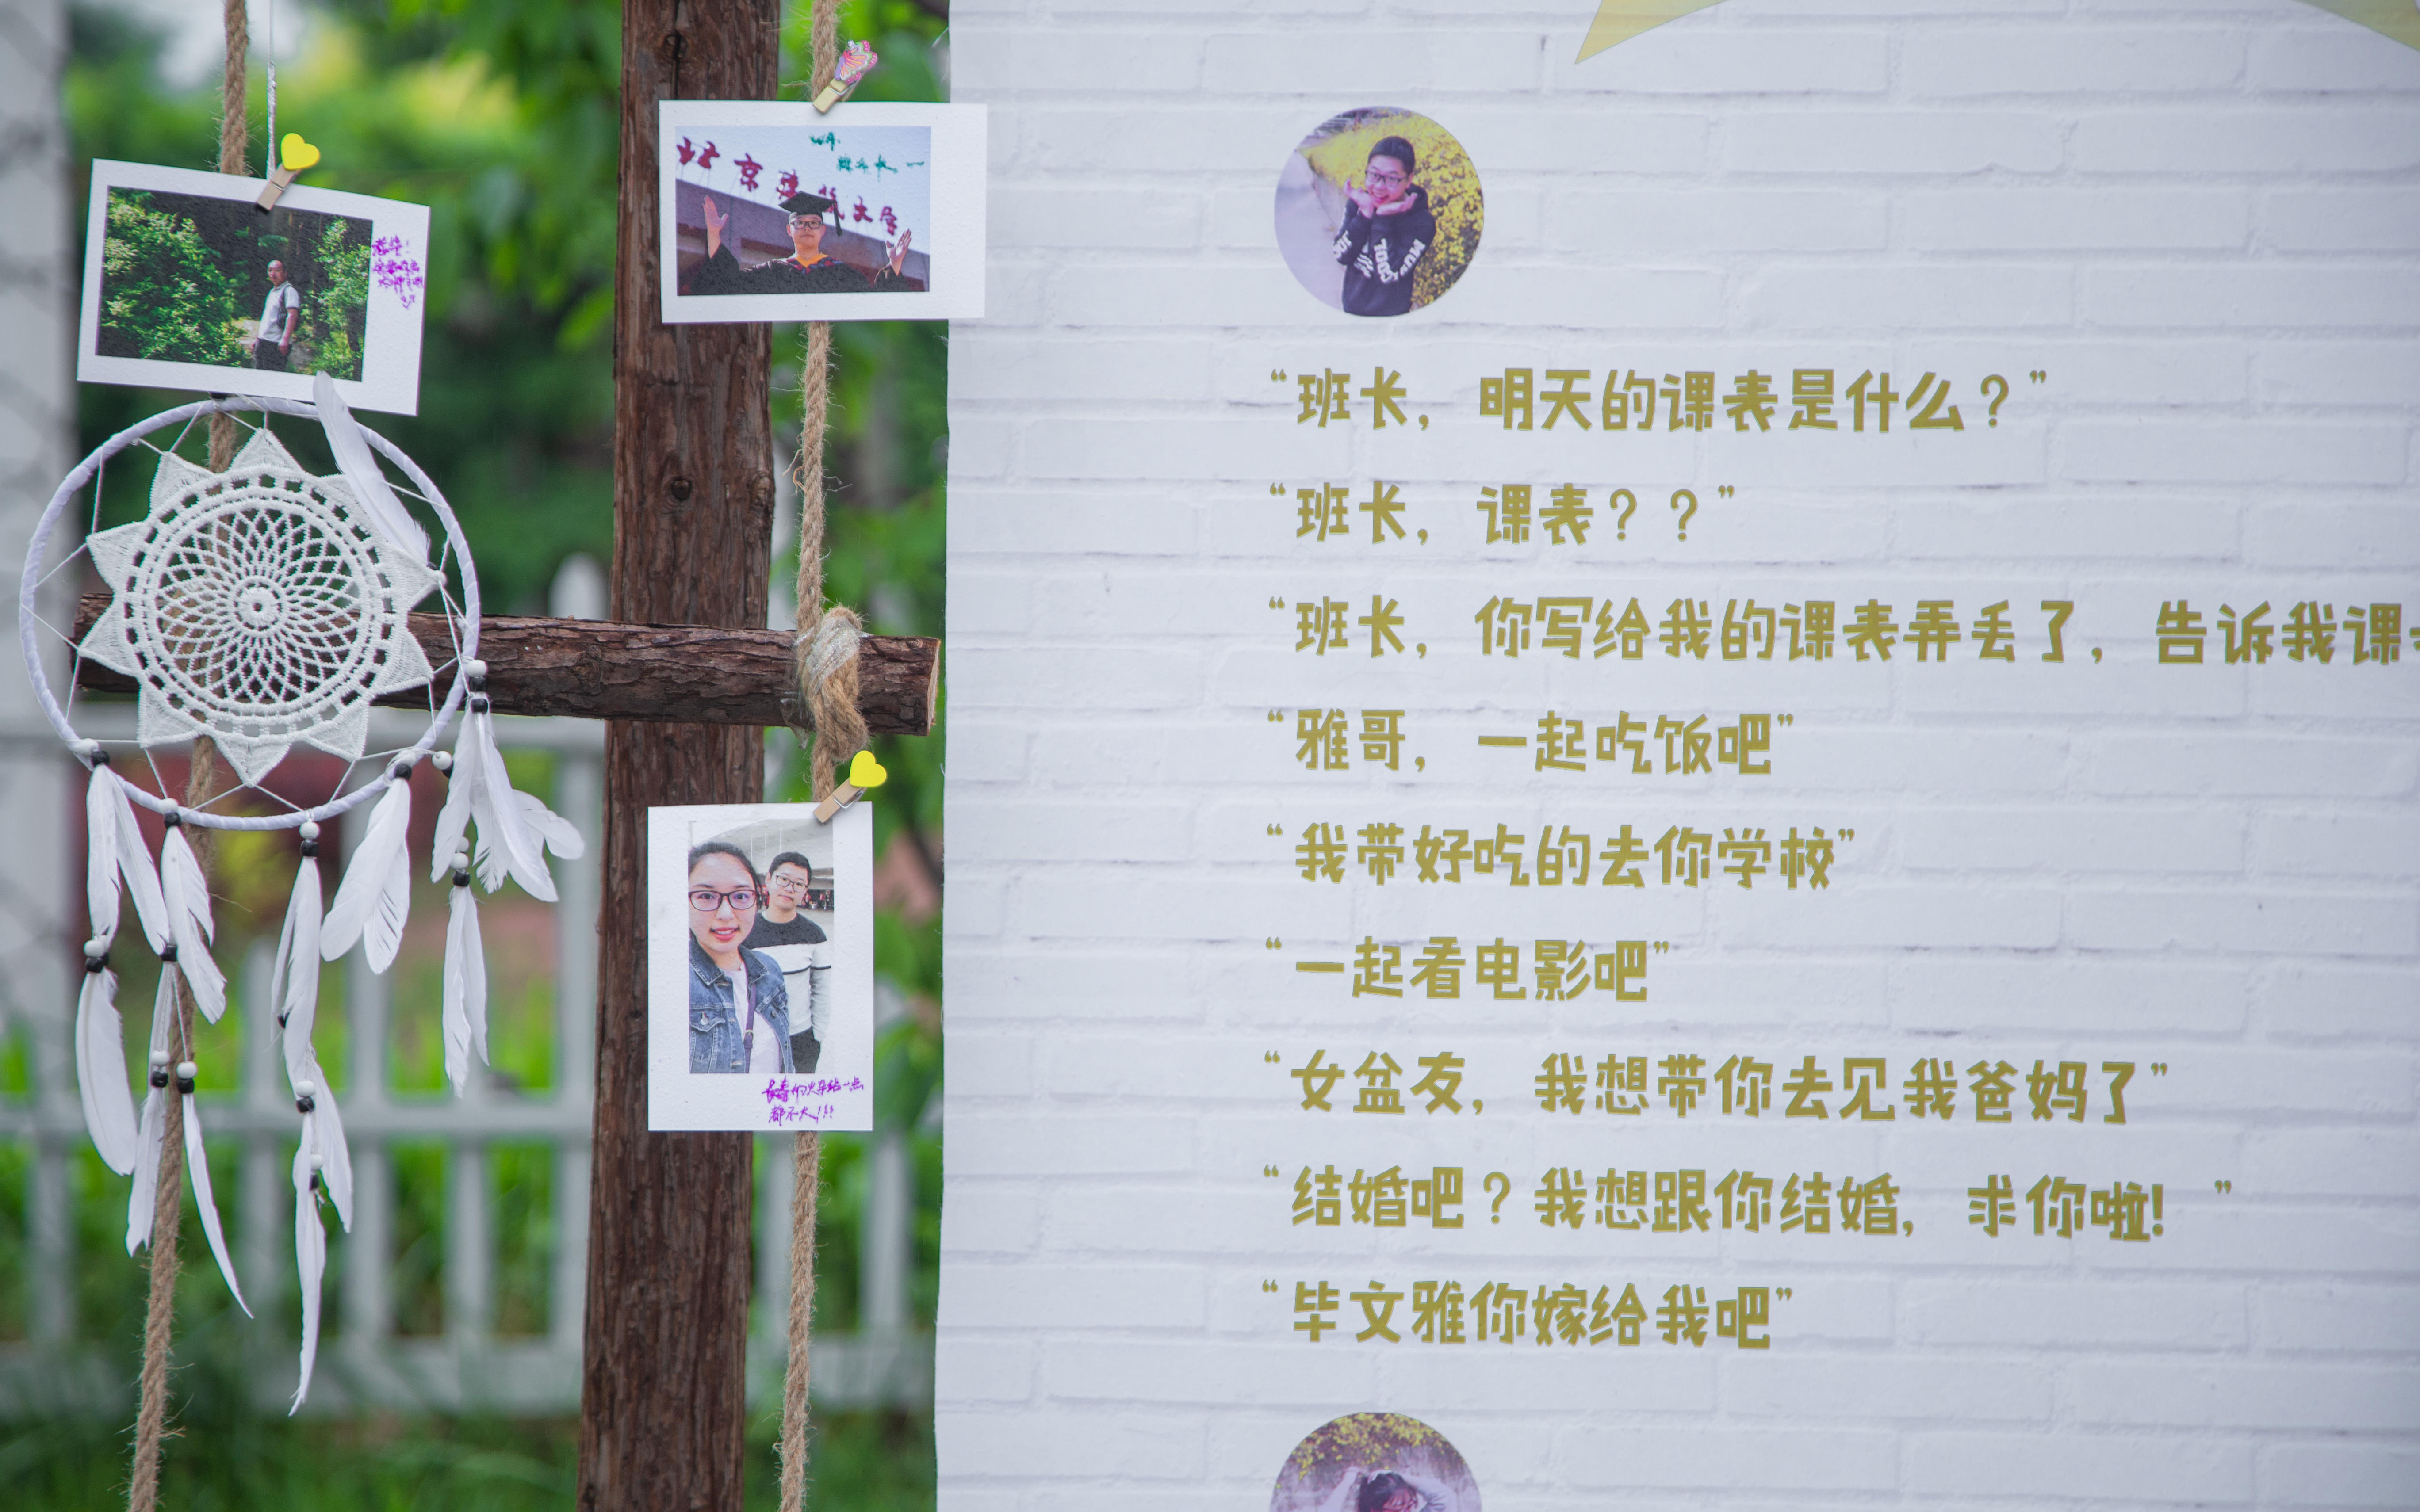 北京建筑大学
长春的火车站一点
都不大!!!
“班长，明天的课表是什么？”
“班长，课表？？”
“班长，你写给我的课表弄丢了，告诉我课
“雅哥，一起吃饭吧”
“我带好吃的去你学校”
“一起看电影吧”
“女盆友，我想带你去见我爸妈了”
“结婚吧？我想跟你结婚，求你啦！”
“毕文雅你嫁给我吧”